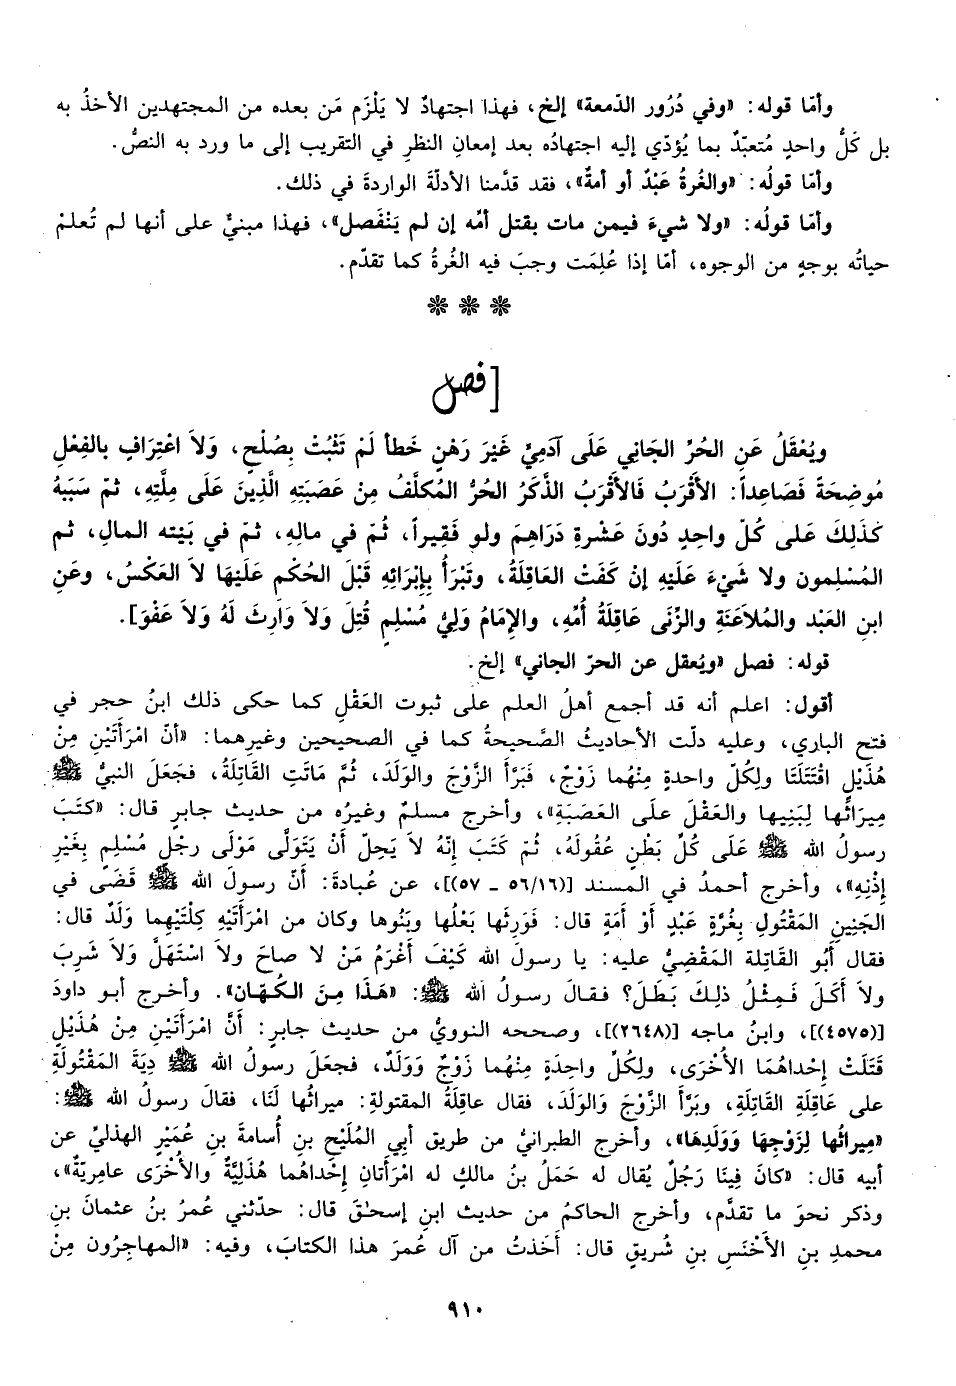 وأمّا قوله: «وفي دُرُور الدّمعة» إلخ، فهذا اجتهادٌ لا يَلْزَم مَن بعده من المجتهدين الأخذُ به
بل كَلُّ واحدٍ مُتعبّدٌ بما يُؤدّي إليه اجتهادُه بعد إمعانِ النظرِ في التقريب إلى ما ورد به النصُّ.
وأمّا قولُه: «والغُرةُ عَبْدٌ أو أمةٌ»، فقد قدّمنا الأدلّةَ الواردةَ في ذلك.
وأمّا قولُه: «ولا شيءَ فيمن مات بقتل أمّه إن لم يَنْفَصل»، فهذا مبنيٌّ على أنها لم تُعلمْ
حياتُه بوجهٍ من الوجوه، أمّا إذا عُلِمَت وجبَ فيه الغُرةُ كما تقدّم.
❊ ❊ ❊
[فصل
ويُعْقَلُ عَنِ الحُرِّ الجَانِي عَلَى آدَمِيٍّ غَيْرَ رَهْنٍ خَطأ لَمْ تَثْبُتْ بِصُلْحٍ، وَلاَ اعْتِرَافٍ بالفِعْلِ
مُوضِحَةً فَصَاعِداً: الأقْرَبُ فَالأقْرَبُ الذَّكَرُ الحُرُّ المُكلَّفُ مِنْ عَصَبَتِهِ الَّذِينَ عَلَى مِلَّتِهِ، ثمّ سَبَبَهُ
كَذَلِكَ عَلَى كُلِّ واحِدٍ دُونَ عَشْرةِ دَرَاهِمَ ولو فَقِيراً، ثُمّ في مالِهِ، ثمّ في بَيْتِه المالِ، ثم
المُسْلِمون ولا شَيْءَ عَلَيْهِ إنْ كَفَتْ العَاقِلَةُ، وتَبْرَأُ بِإبْرَائِهِ قَبْلَ الحُكْمِ عَلَيْهَا لاَ العَكْسُ، وعَنِ
ابنِ العَبْد والمُلاَعَنَةِ والزِّنَى عَاقِلَةُ أُمِّهِ، والإمَامُ وَلِيُّ مُسْلِمٍ قُتِلَ وَلاَ وَارِثَ لَهُ وَلاَ عَفْوَ].
قوله: فصل «ويُعقل عن الحرّ الجاني» إلخ.
أقول: اعلم أنه قد أجمع أهلُ العلم على ثبوت العَقْلِ كما حكى ذلك ابنُ حجر في
فتح الباري، وعليه دلّت الأحاديثُ الصَّحيحةُ كما في الصحيحين وغيرِهما: «أنّ امْرَأَتَيْنِ مِنْ
هُذَيْلِ اقْتَتَلَتَا ولِكُلِّ واحدةٍ مِنْهُما زَوْجٌ، فَبَرَّأَ الزَّوْجَ والوَلَدَ، ثُمَّ مَاتَتِ القَاتِلَةُ، فجَعَلَ النبيُّ ﷺ
مِيرَاثَها لِبَنِيها والعَقْلَ علَى العَصَبَةِ»، وأخرج مسلمٌ وغيرُه من حديث جابرٍ قال: «كتَبَ
رسولُ الله ﷺ عَلَى كُلِّ بَطْنٍ عُقُولَهُ، ثُمّ كَتَبَ إنّهُ لاَ يَحِلّ أَنْ يَتَوَلَّى مَوْلَى رجُلٍ مُسْلِمٍ بِغَيْرِ
إذْنِهِ»، وأخرج أحمدُ في المسند [(٥٦/١٦ ـ ٥٧)]، عن عُبادةَ: أنّ رسولَ الله ﷺ قَضَى في
الجَنِينِ المَقْتُولِ بِغُرَّةٍ عَبْدٍ أوْ أمَةٍ قال: فَوَرِثَها بَعْلُها وبَنُوها وكان من امْرَأَتَيْهِ كِلْتَيْهِما وَلَدٌ قال:
فقال أَبُو القَاتِلة المَقْضِيُّ عليه: يا رسولَ الله كَيْفَ أغْرَمُ مَنْ لا صاحَ ولاَ اسْتَهَلَّ وَلاَ شَرِبَ
ولاَ أكَلَ فَمِثْلُ ذلِكَ بَطَلَ؟ فقالَ رسولُ الله ﷺ: «هَذَا مِنَ الكُهّانِ». وأخرج أبو داودَ
[(٤٥٧٥)]، وابنُ ماجه [(٢٦٤٨)]، وصححه النوويُّ من حديث جابرٍ: أنَّ امْرَأَتَيْنِ مِنْ هُذَيْلٍ
قَتَلَتْ إحْداهُمَا الأُخْرَى، ولِكُلِّ واحِدَةٍ مِنْهُما زَوْجٌ وَوَلَدٌ، فجعَلَ رسولُ الله ﷺ دِيَةَ المَقْتُولَةِ
على عَاقِلَةِ القَاتِلَةِ، وبَرَّأَ الزَّوْجَ والوَلَدَ، فقال عاقِلَةُ المقتولةِ: ميراثُها لَنَا، فقالَ رسولُ الله ﷺ:
«مِيراثُها لِزَوْجِها وَوَلَدِهَا»، وأخرج الطبرانيُّ من طريق أبي المُلَيْحِ بنِ أُسامةَ بنِ عُمَيْرٍ الهذليِّ عن
أبيه قال: «كانَ فِينَا رَجُلٌ يُقال له حَمَلُ بنُ مالكٍ له امْرَأتانِ إحْداهُما هُذَلِيَّةٌ والأُخْرَى عامِريّة»،
وذكر نحوَ ما تقدَّم، وأخرج الحاكمُ من حديث ابنِ إسحٰقَ قال: حدّثني عُمرُ بنُ عثمانَ بنِ
محمدِ بنِ الأخْنَسِ بنِ شُريقٍ قال: أخَذتُ من آل عُمرَ هذا الكتابَ، وفيه: «المهاجِرُون مِنْ
٩١٠